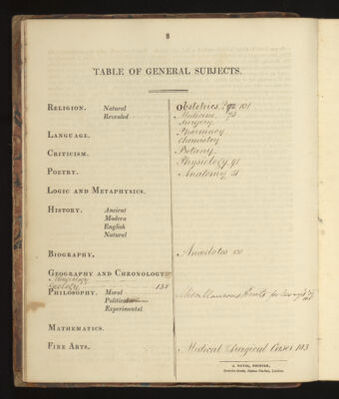 8
TABLE OF GENERAL SUBJECTS.
RELIGION. Natural
Revealed
LANGUAGE.
CRITICISM.
POETRY.
LOGIC AND METAPHYSICS.
HISTORY. Ancient
Modern
English
Natural
BIOGRAPHY,
GEOGRAPHY AND CHRONOLOGY
Geology 138
PHILOSOPHY. Moral
Political
Experimental
MATHEMATICS.
FINE ARTS.
Obstetrics 101
Medicine
Surgery
Pharmacy
Chemistry
Botany
Physiology 91
Anatomy
Anecdotes
Miscellaneous Hints for
Medical Surgical Cases 103